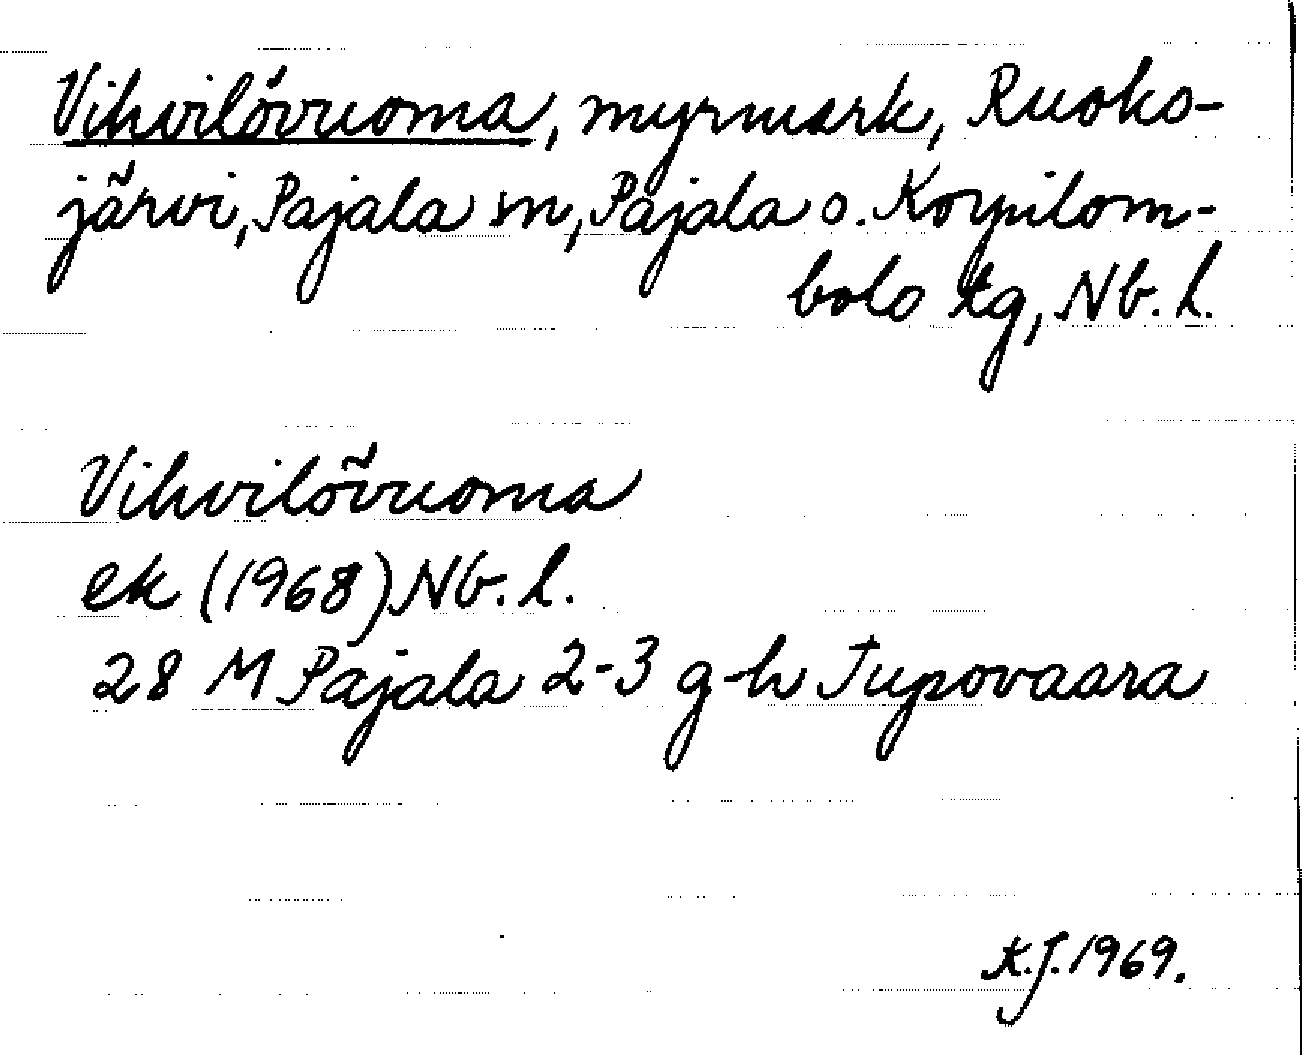 Vihvilövuoma, myrmark, Ruoko-
järvi, Pajala sn, Pajala o. Korpilom-
bolo tg, Nb. l.
Vihvilövuoma
ek (1968) Nb. l.
28 M Pajala 2-3 g-h Jupovaara
K.J. 1969.